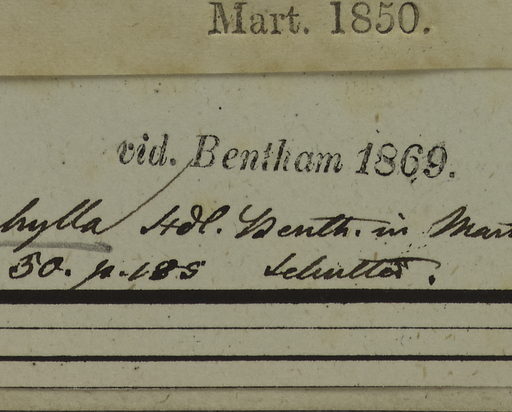 Mart. 1850.
vid. Bentham 1869.
hylla Hdl. Benth. in Mart
50. p. 185